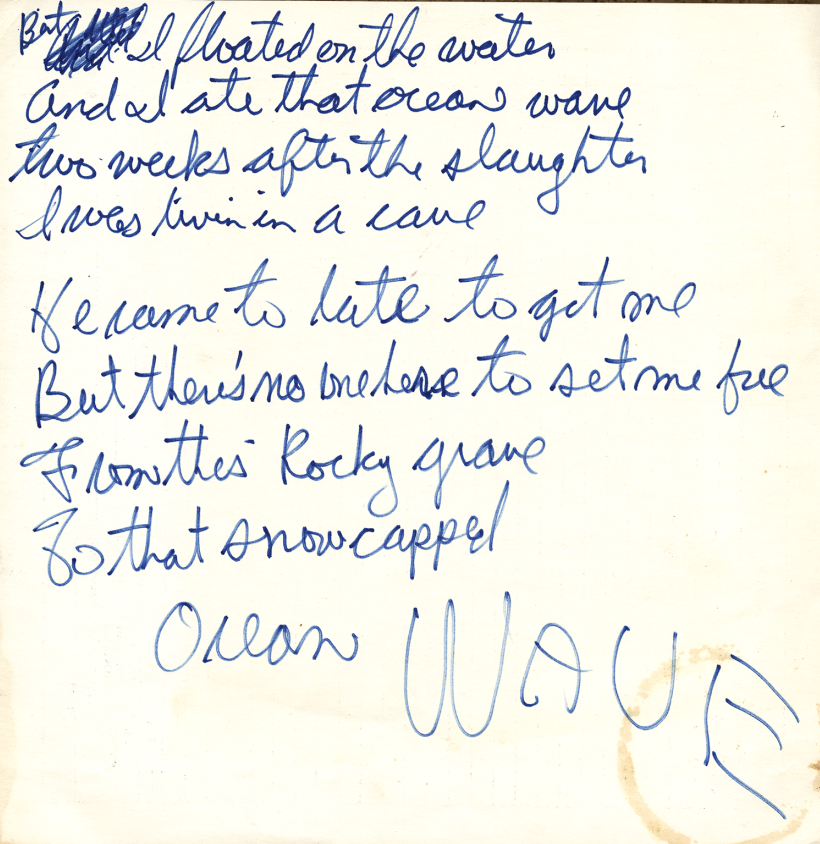 But I floated on the water
And I ate that ocean wave
two weeks after the slaughter
I was livin in a cave
He came to late to get me
But there's no one here to set me free
From this Rocky grave
To that snowcapped
Ocean WAVE